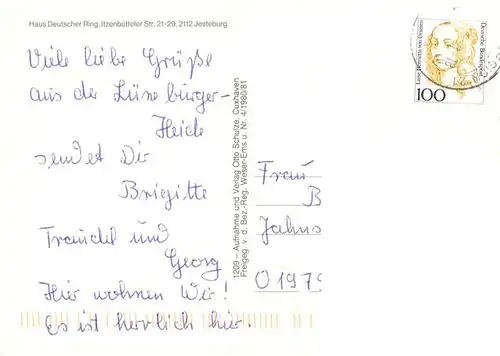 Haus Deutscher Ring, Itzenbütteler Str. 21-29, 2112 Jesteburg
Viele liebe Grüße
aus der Lüneburger-
Heide
sendet Dir
Brigitte
Traudel und
Georg
Hier wohnen Wir!
Es ist herrlich hier.
1209 – Aufnahme und Verlag Otto Schulze, Cuxhaven
Freigeg. v. d. Bez.-Reg. Weser-Ems u. Nr. 4/1980/81
Deutsche Bundespost
Luise Henriette von Oranien
100
Frau
B
Jahns
O 1979